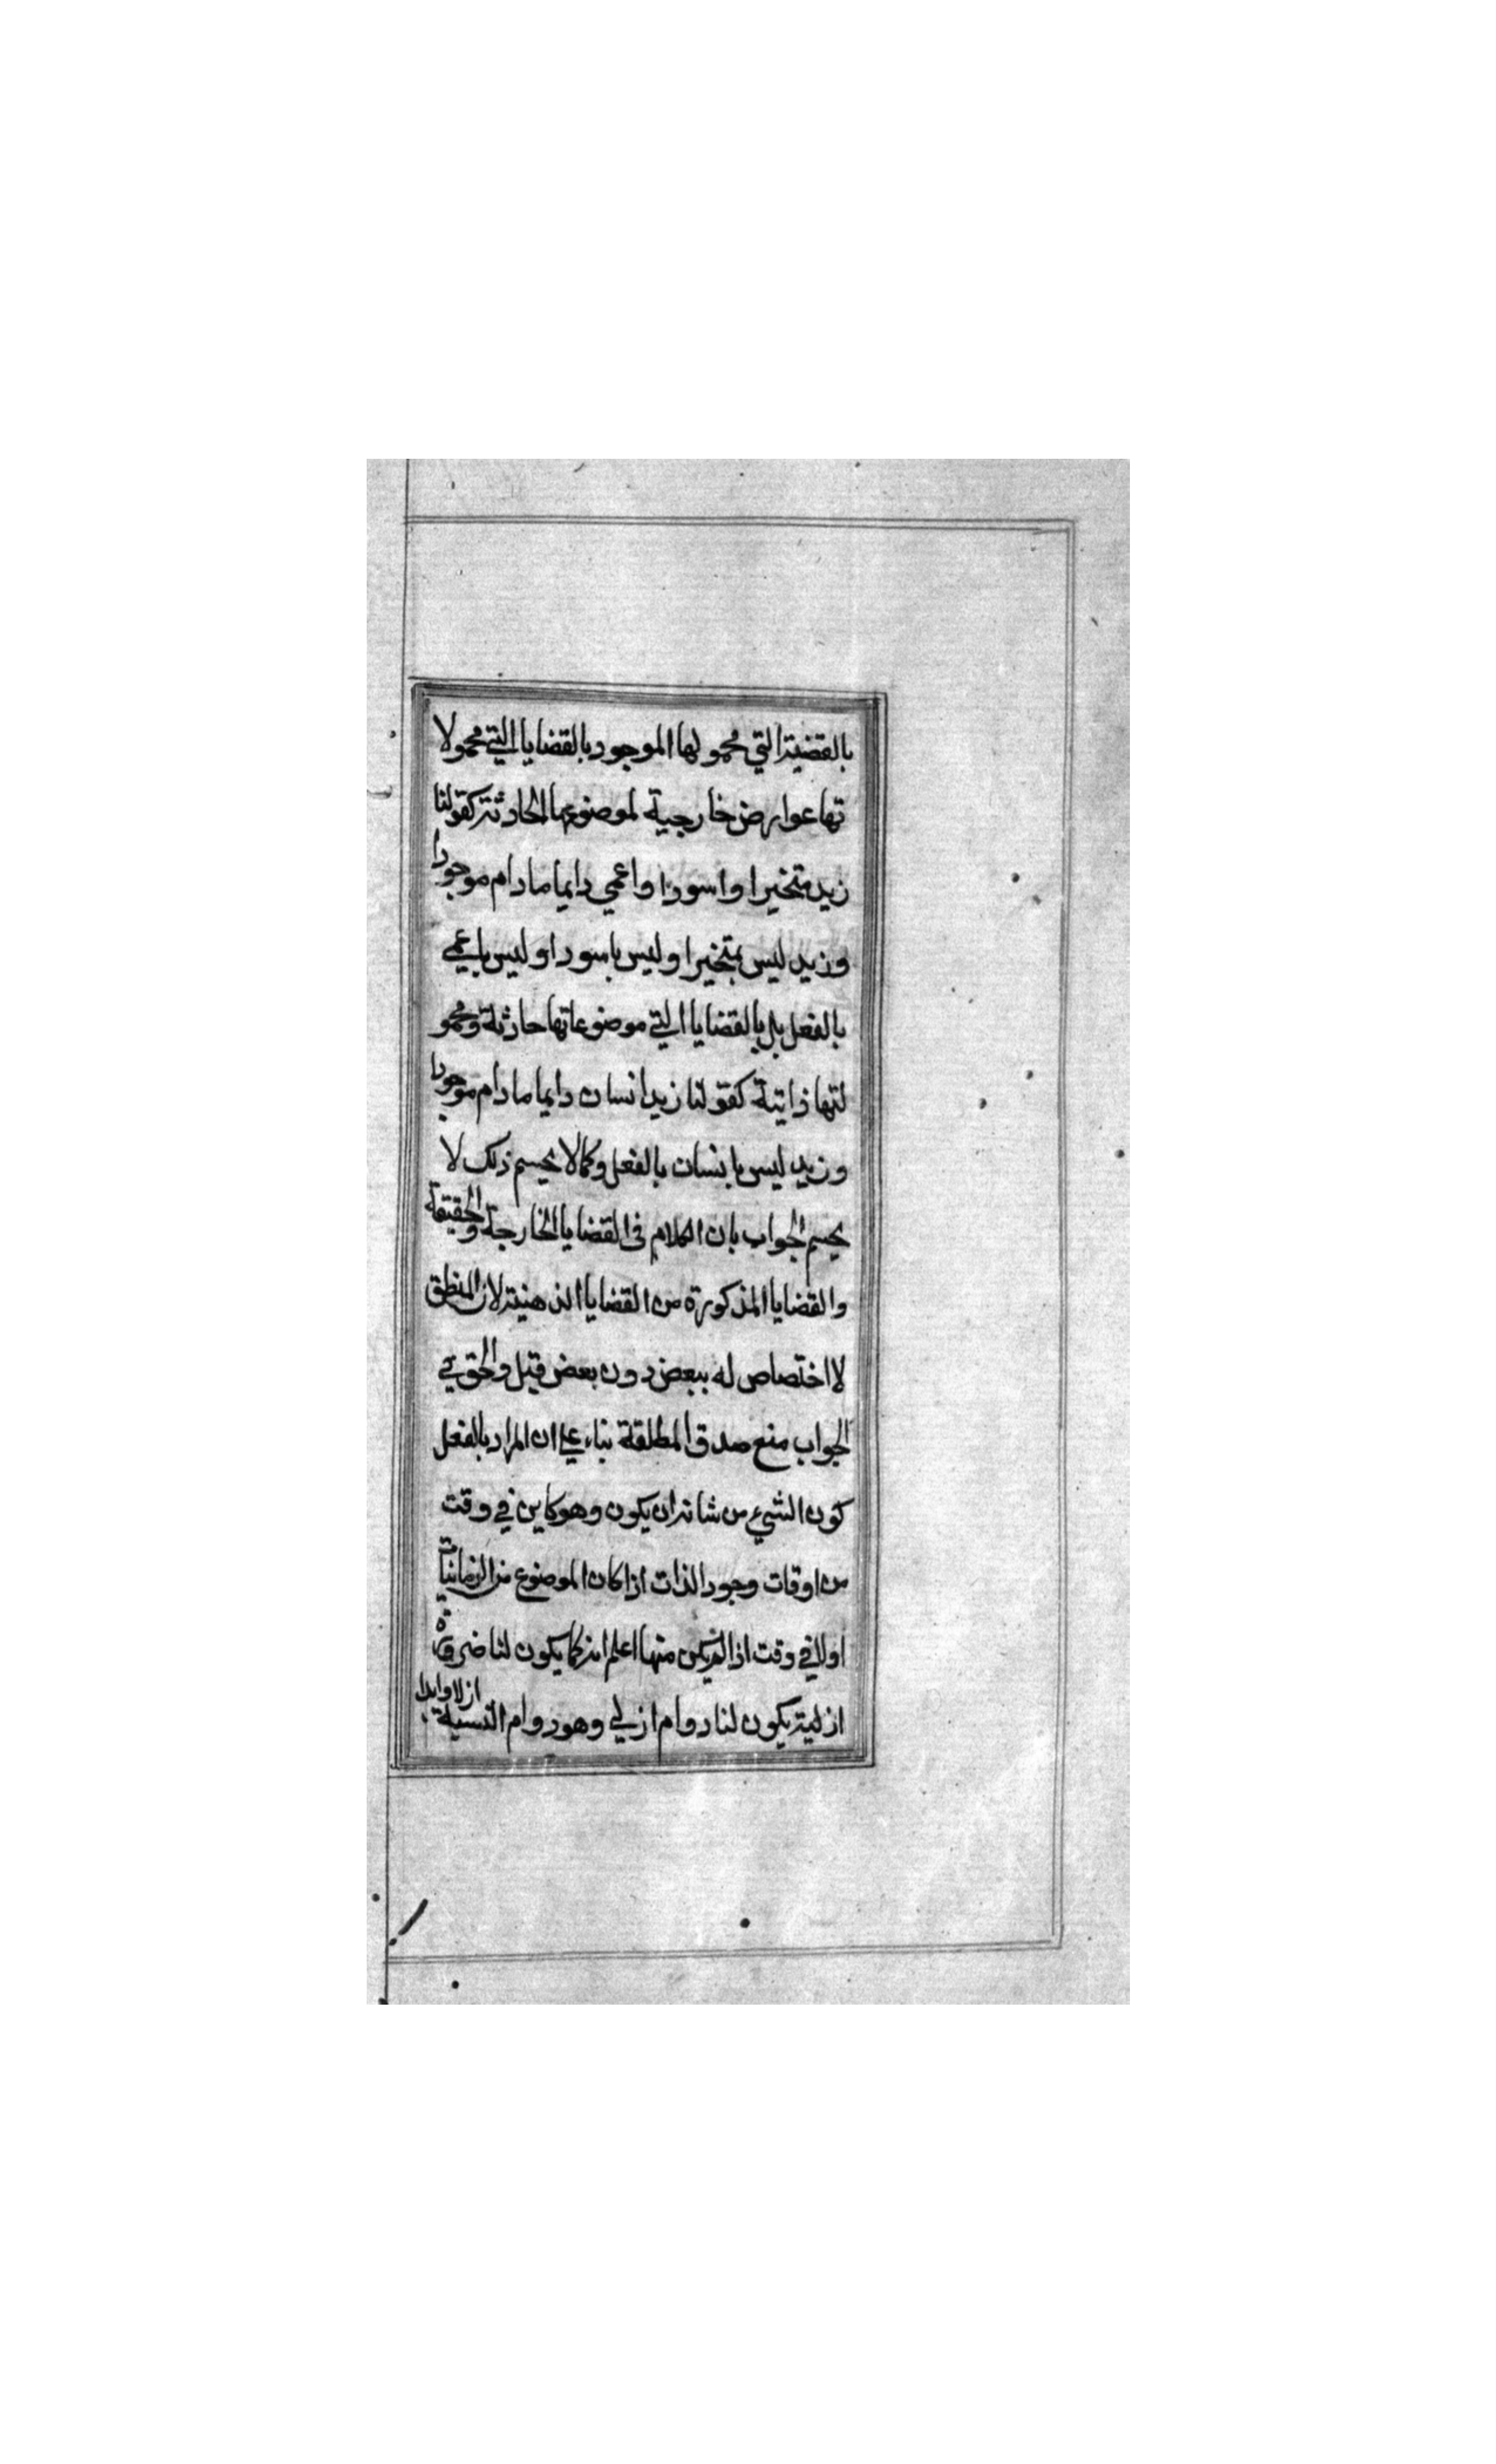 بالقضية التي محمولها الموجود بالقضايا التي محمولا
تها عوارض خارجية لموضوعها الحادثة كقولنا
زيد متحيرا واسودا واعمي دايما مادام موجودا
وزيد ليس بمتحيرا وليس باسود او ليس باعمي
بالفعل بل بالقضايا التي موضوعاتها حادثة ومحمو
لتها ذاتية كقولنا زيد انسان دايما مادام موجودا
وزيد ليس بانسان بالفعل وكما لا يحسم ذلك لا
يحسم الجواب بان الكلام في القضايا الخارجة والحقيقة
والقضايا المذكورة من القضايا الذهنية لان المنطق
لا اختصاص له ببعض دون بعض قيل والحق في
الجواب منع صدق المطلقة بناء علي ان المراد بالفعل
كون الشيء من شانه ان يكون وهو كاين في وقت
من اوقات وجود الذات اذا كان الموضوع من الزمانيات
اولا في وقت اذا لم يكن منها اعلم انه كما يكون لنا ضرورة
ازلية يكون لنا دوام ازلي وهو دوام النسبة ازلا وابدا